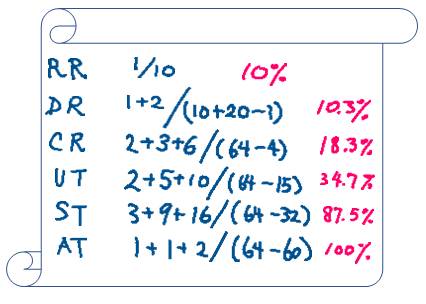 RR 1/10 10%
DR 1+2/(10+20-1) 10.3%
CR 2+3+6/(64-4) 18.3%
UT 2+5+10/(64-15) 34.7%
ST 3+9+16/(64-32) 87.5%
AT 1+1+2/(64-60) 100%